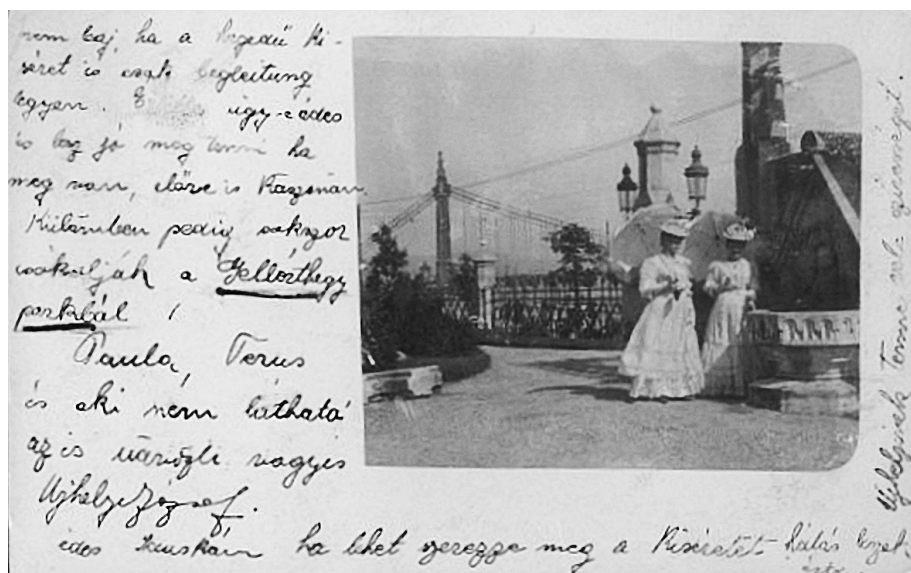 nem baj, ha a hegedű ki-
séret is csak begleitung
legyen. úgy-e édes
is lesz jó meg tenni ha
meg van, előre is köszönöm.
Különben pedig sokszor
csókolják a Gellérthegy
parkból!
Paula, Terus
és aki nem látható
az is üdvözli vagyis
Ujhelyi József.
édes ha lehet szerezze meg a Kiséretet hálás leszek
érte
Ujhelyinek tenne vele szivességet.